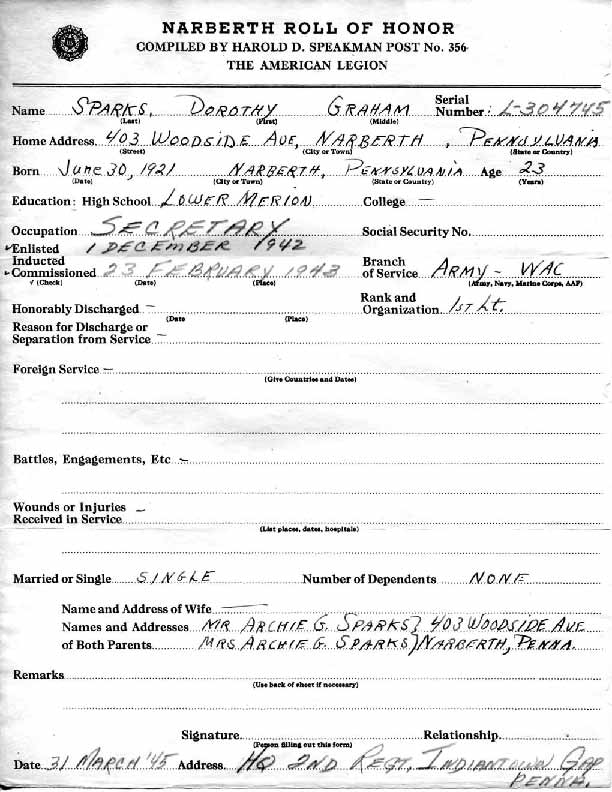 NARBERTH ROLL OF HONOR
COMPILED BY HAROLD D. SPEAKMAN POST No. 356
THE AMERICAN LEGION
Name SPARKS, DOROTHY GRAHAM Serial Number: L-304745
(Last) (First) (Middle)
Home Address 403 WOODSIDE AVE, NARBERTH, PENNSYLVANIA
(Street) (City or Town) (State or Country)
Born JUNE 30, 1921 NARBERTH, PENNSYLVANIA Age 23
(Date) (City or Town) (State or Country) (Years)
Education: High School LOWER MERION College —
Occupation SECRETARY Social Security No.
✓Enlisted 1 DECEMBER 1942
Inducted Branch
✓Commissioned 23 FEBRUARY 1943 of Service ARMY - WAC
√ (Check) (Date) (Place) (Army, Navy, Marine Corps, AAF)
Rank and
Honorably Discharged — Organization 1ST Lt.
(Date (Place)
Reason for Discharge or
Separation from Service —
Foreign Service —
(Give Countries and Dates)
Battles, Engagements, Etc —
Wounds or Injuries —
Received in Service
(List places, dates, hospitals)
Married or Single SINGLE Number of Dependents NONE
Name and Address of Wife —
Names and Addresses MR ARCHIE G. SPARKS} 403 WOODSIDE AVE
of Both Parents MRS ARCHIE G. SPARKS} NARBERTH, PENNA.
Remarks
(Use back of sheet if necessary)
Signature Relationship
(Person filling out this form)
Date 31 MARCH '45 Address HQ 2ND REGT, INDIANTOWN GAP
PENNA.